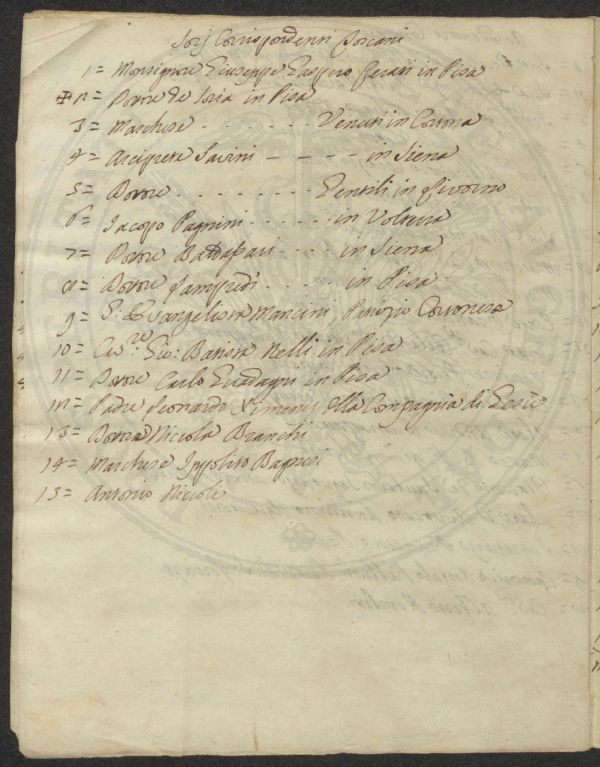 Socj Corrispondenti Toscani
1= Monsignore Giuseppe Gaspero Cerati in Pisa
2= Dottore de Soria in Pisa
3= Marchese . . . . . . . Venuti in Cortona
4= Arciprete Savini - - - - in Siena
5= Dottore . . . . . . . . Gentili in Livorno
6= Jacopo Pagnini . . . . . in Volterra
7= Dottore Baldassari . . . . in Siena
8= Dottore Lampredi . . . . . in Pisa
9= S.r Evangelista Mancini Patrizio Cortonese
10= Cav.re Gio: Batista Nelli in Pisa
11= Dottore Carlo Guadagni in Pisa
12= Padre Leonardo Ximenes della Compagnia di Gesù
13= Dottore Niccola Branchi
14= Marchese Ippolito Bagnesi
15= Antonio Niccoli